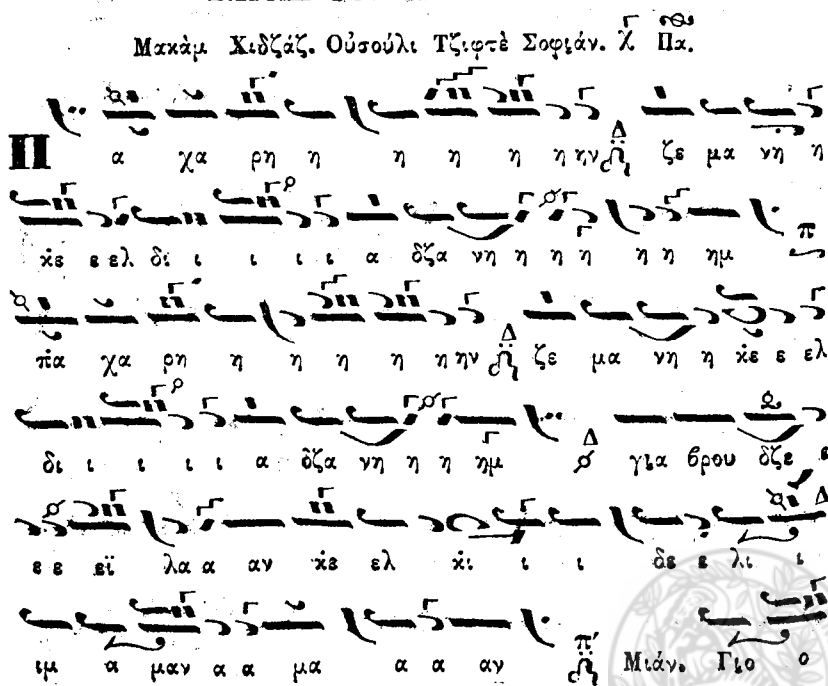 Μακὰμ Χιδζάζ. Οὐσούλι Τζιφτὲ Σοφιάν. χ̈ Πα.
Π α χα ρη η η η η η ην Δ ζε μα νη η
κε ε ελ δι ι ι ι ι α δζα νη η η η η η ημ π
πα χα ρη η η η η η ην Δ ζε μα νη η κε ε ελ
δι ι ι ι ι α δζα νη η η ημ Δ για βρου δζε ε
ε ε εϊ λα α αν κε ελ κι ι ι δε ε λι ι Δ
ιμ α μαν α α μα α α αν π' Μιάν. Γιο ο